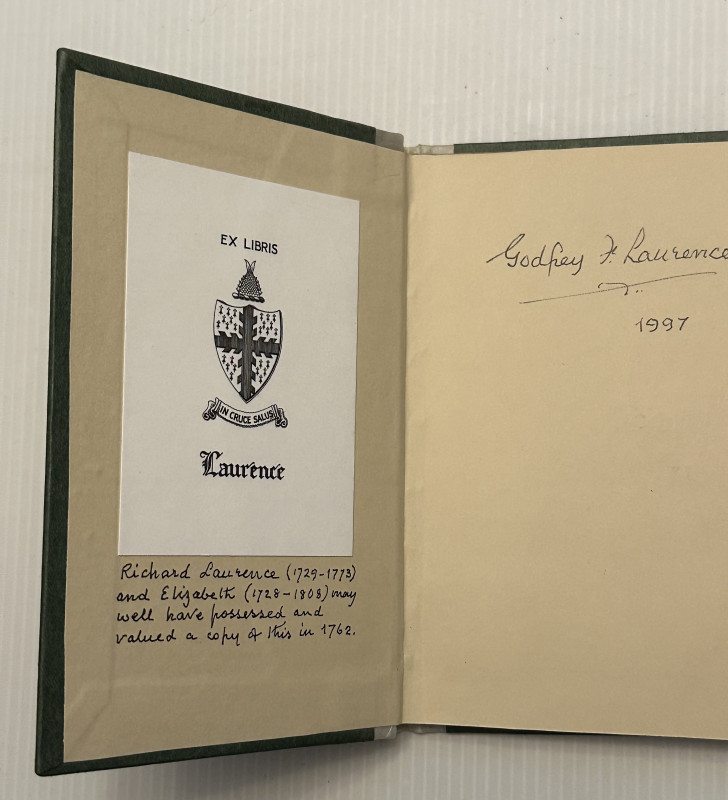 EX LIBRIS
IN CRUCE SALUS
Laurence
Richard Laurence (1729-1773)
and Elizabeth (1728-1808) may
well have possessed and
valued a copy of this in 1762.
Godfrey F. Laurence
1997